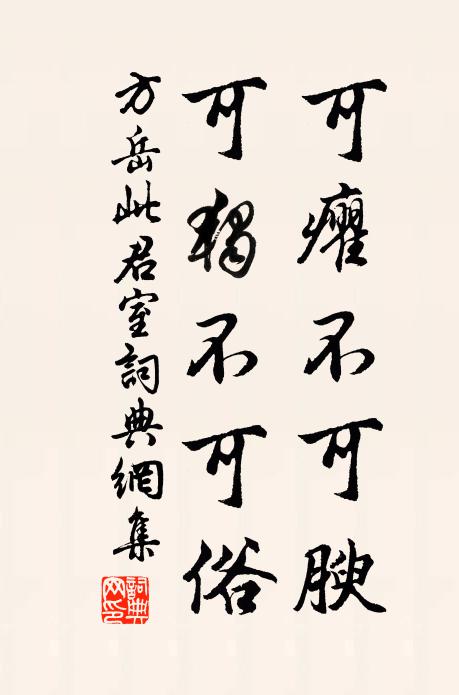 可癯不可腴
可獨不可俗
方岳此君室詞典網集
詞典網印